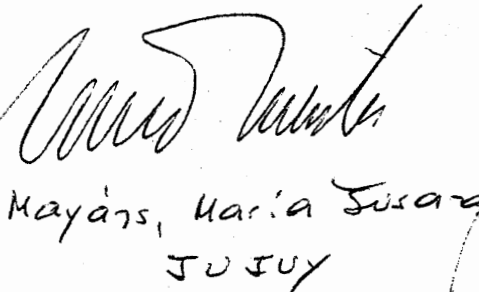 Mayáns, María Susana
JUJUY